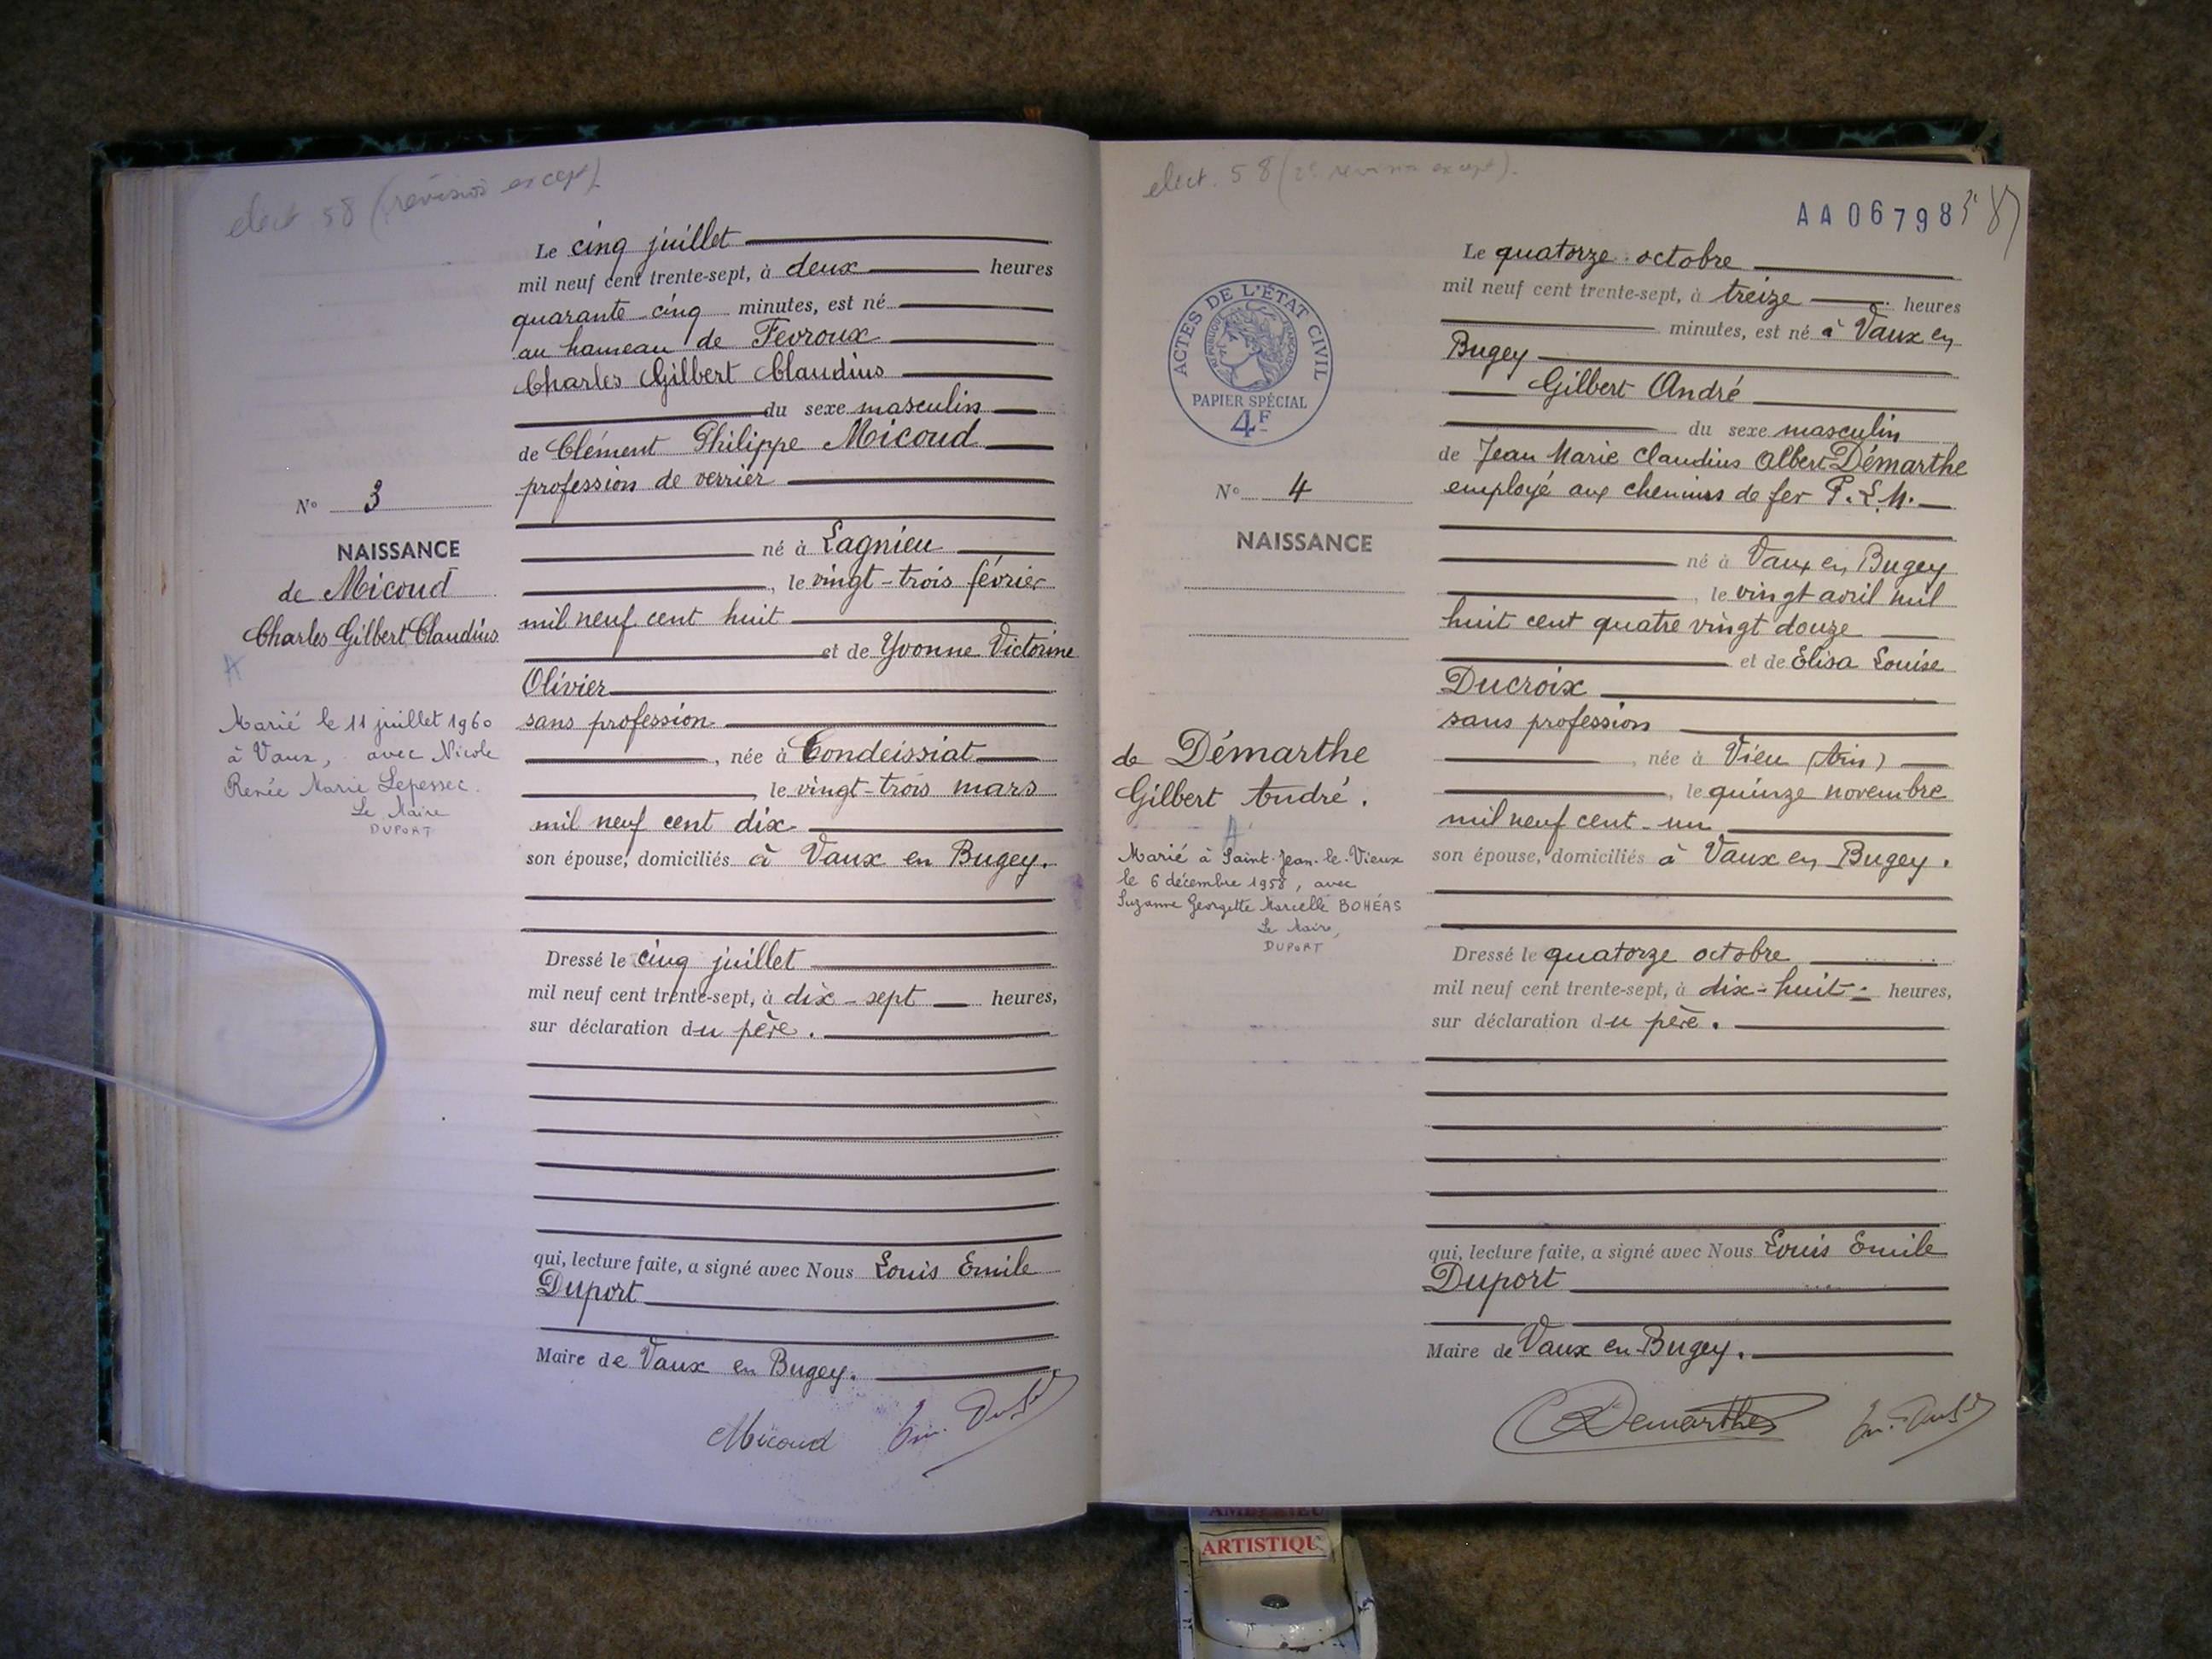 elect 58 (révision except)
Le cinq juillet
mil neuf cent trente-sept, à deux heures
quarante-cinq minutes, est né
au hameau de Fevroux
Charles Gilbert Claudius
du sexe masculin
de Clément Philippe Micoud
profession de verrier
né à Lagnieu
, le vingt-trois février
mil neuf cent huit
et de Yvonne Victorine
Olivier
sans profession
, née à Condeissiat
, le vingt-trois mars
mil neuf cent dix
son épouse, domiciliés à Vaux en Bugey.
Dressé le cinq juillet
mil neuf cent trente-sept, à dix-sept heures,
sur déclaration du père.
qui, lecture faite, a signé avec Nous Louis Emile
Duport
Maire de Vaux en Bugey.
Micoud
N° 3
NAISSANCE
de Micoud
Charles Gilbert Claudius
Marié le 11 juillet 1960
à Vaux, avec Nicole
Renée Marie Lepessec.
Le Maire
DUPORT
elect. 58 (2e revision except).
AA06798
Le quatorze octobre
mil neuf cent trente-sept, à treize heures
minutes, est né à Vaux en
Bugey
Gilbert André
du sexe masculin
de Jean Marie Claudius Albert Démarthe
employé aux chemins de fer P.L.M.
né à Vaux en Bugey
, le vingt avril mil
huit cent quatre vingt douze
et de Elisa Louise
Ducroix
sans profession
, née à Vieu (Ain)
, le quinze novembre
mil neuf cent un
son épouse, domiciliés à Vaux en Bugey.
Dressé le quatorze octobre
mil neuf cent trente-sept, à dix-huit heures,
sur déclaration du père.
qui, lecture faite, a signé avec Nous Louis Emile
Duport
Maire de Vaux en Bugey.
Demarthe
ACTES DE L'ÉTAT CIVIL
RÉPUBLIQUE FRANÇAISE
PAPIER SPÉCIAL
4F
N° 4
NAISSANCE
de Démarthe
Gilbert André.
Marié à Saint-Jean-le-Vieux
le 6 décembre 1958, avec
Suzanne Georgette Marcelle BOHÉAS
Le Maire,
DUPORT
ARTISTIQU